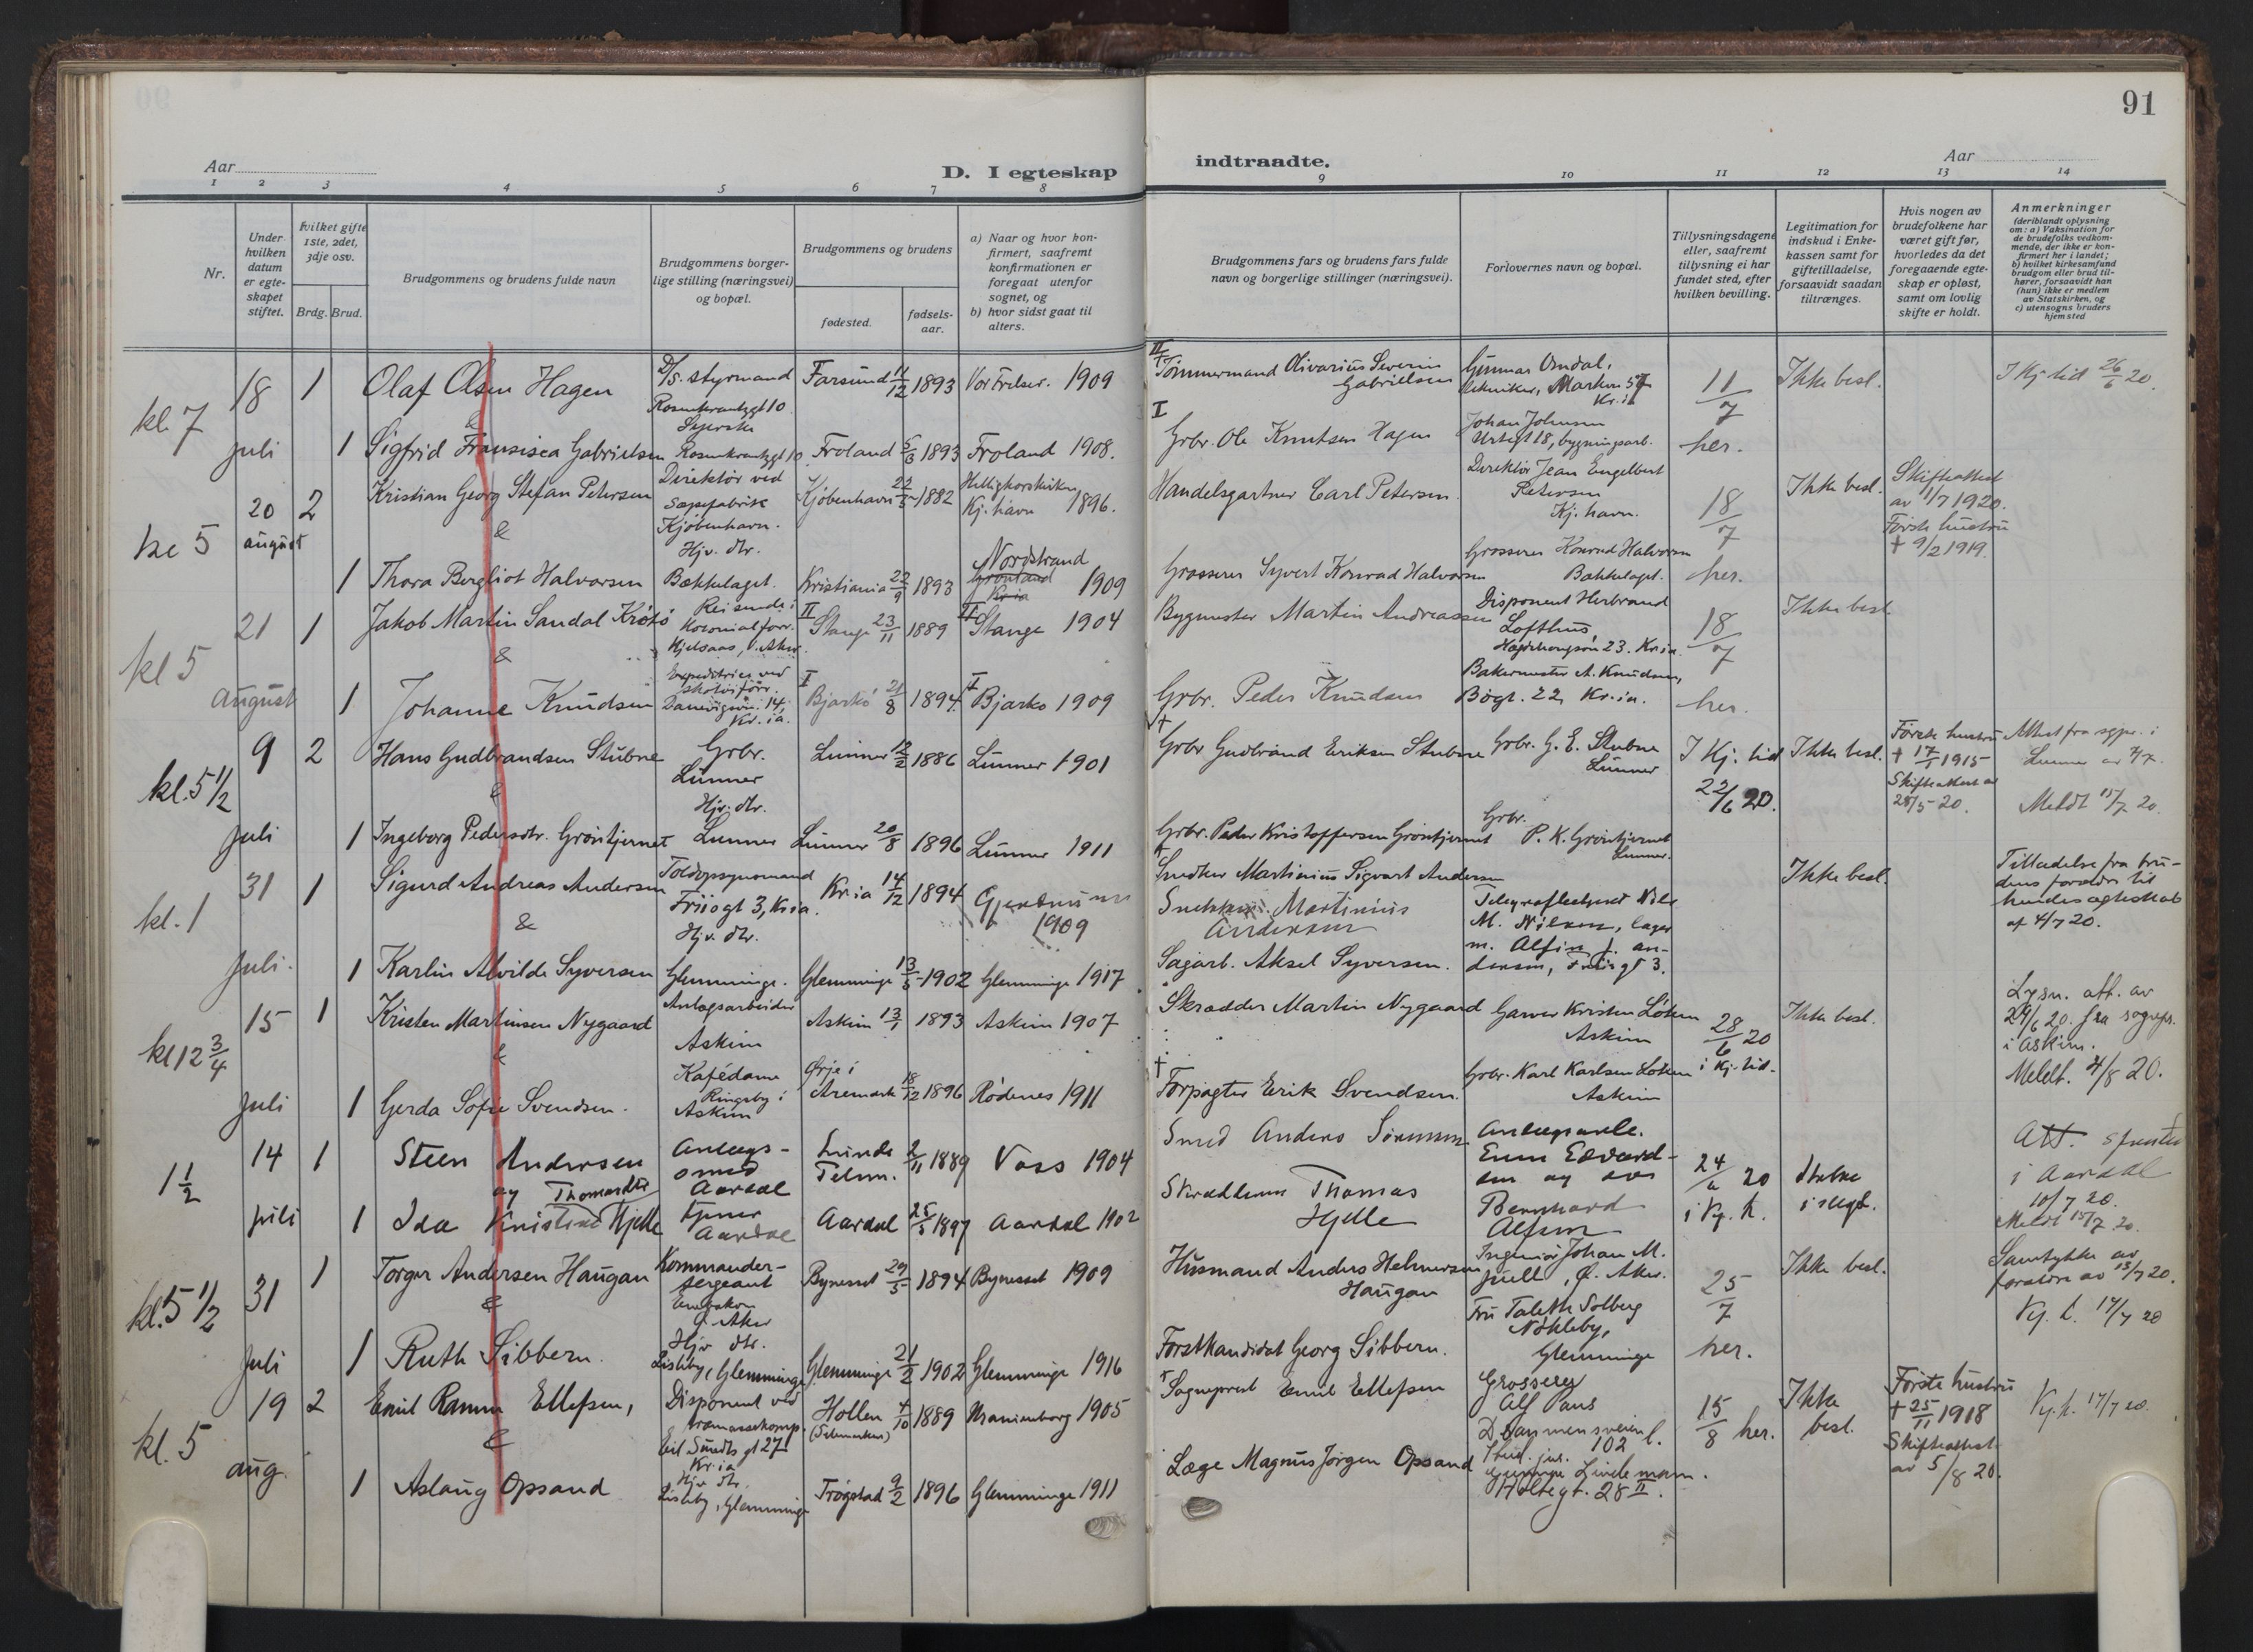 91
Aar
D. I egteskap
indtraadte.
Aar
1 2 3 4 5 6 7 8 9 10 11 12 13 14
Nr.
Under
hvilken
datum
er egte-
skapet
stiftet.
Hvilket gifte
1ste, 2det,
3dje osv.
Brdg. Brud.
Brudgommens og brudens fulde navn
Brudgommens borger-
lige stilling (næringsvei)
og bopæl.
Brudgommens og brudens
fødested.
fødsels-
aar.
a) Naar og hvor kon-
firmert, saafremt
konfirmationen er
foregaat utenfor
sognet, og
b) hvor sidst gaat til
alters.
Brudgommens fars og brudens fars fulde
navn og borgerlige stillinger (næringsvei).
Forlovernes navn og bopæl.
Tillysningsdagene
eller, saafremt
tillysning ei har
fundet sted, efter
hvilken bevilling.
Legitimation for
indskud i Enke-
kassen samt for
giftetilladelse,
forsaavidt saadan
tiltrænges.
Hvis nogen av
brudefolkene har
været gift før,
hvorledes da det
foregaaende egte-
skap er opløst,
samt om lovlig
skifte er holdt.
Anmerkninger
(deriblandt oplysning
om: a) Vaksination for
de brudefolks vedkom-
mende, der ikke er kon-
firmert her i landet;
b) hvilket kirkesamfund
brudgom eller brud til-
hører, forsaavidt han
(hun) ikke er medlem
av Statskirken, og
c) utensogns bruders
hjemsted
kl. 7
18
juli
1
Olaf Olsen Hagen
D/s. styrmand
Rosenkrantzgt 10
Farsund 11/12 1893
Vor Frelser. 1909
II
+ Tømmermand Olivarius Severin
Gabrielsen
Gunnar Omdal,
tekniker, Marken 57
Kr.ia
11/7
her.
Ikke besl.
I Kj. tid 26/6 20.
&
1 Sigfrid Fransisca Gabrielsen
Syerske
Rosenkrantzgt 10
Froland 5/6 1893
Froland 1908.
I
Grbr. Ole Knutsen Hagen
Johan Johnsen
Urtegt 18, bygningsarb.
kl 5
20
august
2
Kristian Georg Stefan Petersen
Direktør ved
Sæpefabrik
Kjøbenhavn.
Kjøbenhavn 22/5 1882
Helligkorskirken
Kj. havn 1896.
Handelsgartner Carl Petersen.
Direktør Jean Engelbert
Petersen
Kj. havn.
18/7
her.
Ikke besl.
Skifteattest
av 1/7 1920.
Første hustru
+ 9/2 1919.
&
1 Thora Bergliot Halvorsen
Hjv. dtr.
Bækkelaget.
Kristiania 22/9 1893
Nordstrand
Grønland
Kria
1909
Grosserer Syvert Konrad Halvorsen
Grosserer Konrad Halvorsen
Bækkelaget.
kl 5
21
august
1
Jakob Martin Sandal
Reisende i
Kolonialforr.
Kjelsaas, V. Aker.
II
Stange 23/11 1889
II
Stange 1904
Bygmester Martin Andreassen
Disponent Herbrand
Lofthus,
Hægdehaugsvn 23. Kria.
18/7
her.
Ikke besl
&
1 Johanne Knudsen
Expeditrice ved
skotøiforr.
Danevigsvn. 14,
Kr. ia.
I
Bjarkø 21/8 1894
I
Bjarkø 1909
Grbr. Peder Knudsen
Bakermester A. Knudsen,
Bogt. 22, Kr. ia.
kl. 5 1/2
9
juli
2
Hans Gudbrandsen Stubne
Grbr.
Lunner
Lunner 12/2 1886
Lunner 1901
+
Grbr Gudbrand Eriksen Stubne
Grbr. G. E. Stubne
Lunner
I Kj. tid
22/6 20.
Ikke besl.
Første hustru
+ 17/1 1915
Skifteattest av
28/5 20.
Attest fra sgpr. i
Lunner av 4/7.
Meldt 15/7 20.
&
1 Ingeborg Pedersdtr. Grøntjernet
Hjv. dtr.
Lunner
Lunner 20/8 1896
Lunner 1911
Grbr. Peder Kristoffersen Grøntjernet
Grbr.
P. K. Grøntjernet
Lunner.
kl. 1
31
juli.
1
Sigurd Andreas Andersen
Toldopsynsmand
Friisgt 3, Kria.
Kr.ia 14/12 1894
Gjerdrum
1909
Snedker Martinius Sigvart Andersen
Snekker. Martinius
Andersen
Telegrafbestyrer Nils
M. Nilsen, lager
m. Alfin J. An-
dersen, Friisgt 3.
Ikke besl.
Tilladelse fra bru-
dens forældre til
hendes egteskab
af 4/7 20.
&
1 Karlin Alvilde Syversen
Hjv. dtr.
Glemminge.
Glemminge 13/5 1902
Glemminge 1917
Sagarb. Aksel Syversen.
kl 12 3/4
15
juli
1
Kristen Martinsen Nygaard
Anlægsarbeider
Askim
Askim 13/1 1893
Askim 1907
Skrædder Martin Nygaard
Garver Kristen Løken
Askim
28/6 20
i Kj. tid.
Ikke besl.
Lysn. att. av
24/6 20. fra sogepr.
i Askim.
Meldt. 4/8 20.
&
1 Gerda Sofie Svendsen.
Kafédame
Ringsby i
Askim
Ørje i
Aremark 18/12 1896
Rødenes 1911
+
Forpagter Erik Svendsen.
Grbr. Karl Karlsen Løken
Askim
1 1/2
14
juli
1
Steen Andersen
Anlegs-
smed
Aardal
Lunde
Telem. 2/11 1889
Voss 1904
Smed Anders Sørensen
Anlegsarb.
24/6 20
i Kj. t.
i slegt.
Att. spresten
i Aardal
10/7 20.
Meldt 15/7 20.
og Thomasdtr
1 Ida Kristine Hjelle
Aardal
Aardal 25/5 1897
Aardal 1902
Thomas
Hjelle
Bernhard
kl. 5 1/2
31
juli
1
Torger Andersen Haugan
Kommander-
sergeant
Ø. Aker
Bynesset 29/5 1894
Bynesset 1909
Husmand Anders Helmersen
Haugan
Ingeniør Johan M.
Juell, Ø. Aker.
25/7
her.
Ikke besl.
Samtykke av
forældre av 13/7 20.
Kj. t. 17/7 20
&
1 Ruth Sibbern.
Hjv dtr.
Lisleby, Glemminge
Glemminge 21/2 1902
Glemminge 1916
Forstkandidat Georg Sibbern.
Fru Taleth Solberg
Nøkleby,
Glemminge
kl. 5
19
aug.
2
Emil Ramm Ellefsen,
Disponent ved
træmassekomp.
Eil. Sundts gt 27
Kr.ia
Hollen
(Telemarken) 4/10 1889
Uranienborg 1905
+ Sogneprest Emil Ellefsen
Grosserer
Alf Paus
Drammensveien
102
15/8 her.
Ikke
besl.
Første hustru
+ 25/11 1918
Skifteattest
av 5/8 20.
Kj. t. 17/7 20.
&
1 Aslaug Opsand
Hjv dtr.
Lisleby, Glemminge
Trøgstad 9/2 1896
Glemminge 1911
Læge Magnus Jørgen Opsand
Stud. jur.
Lindemann.
Holtegt. 28 II.